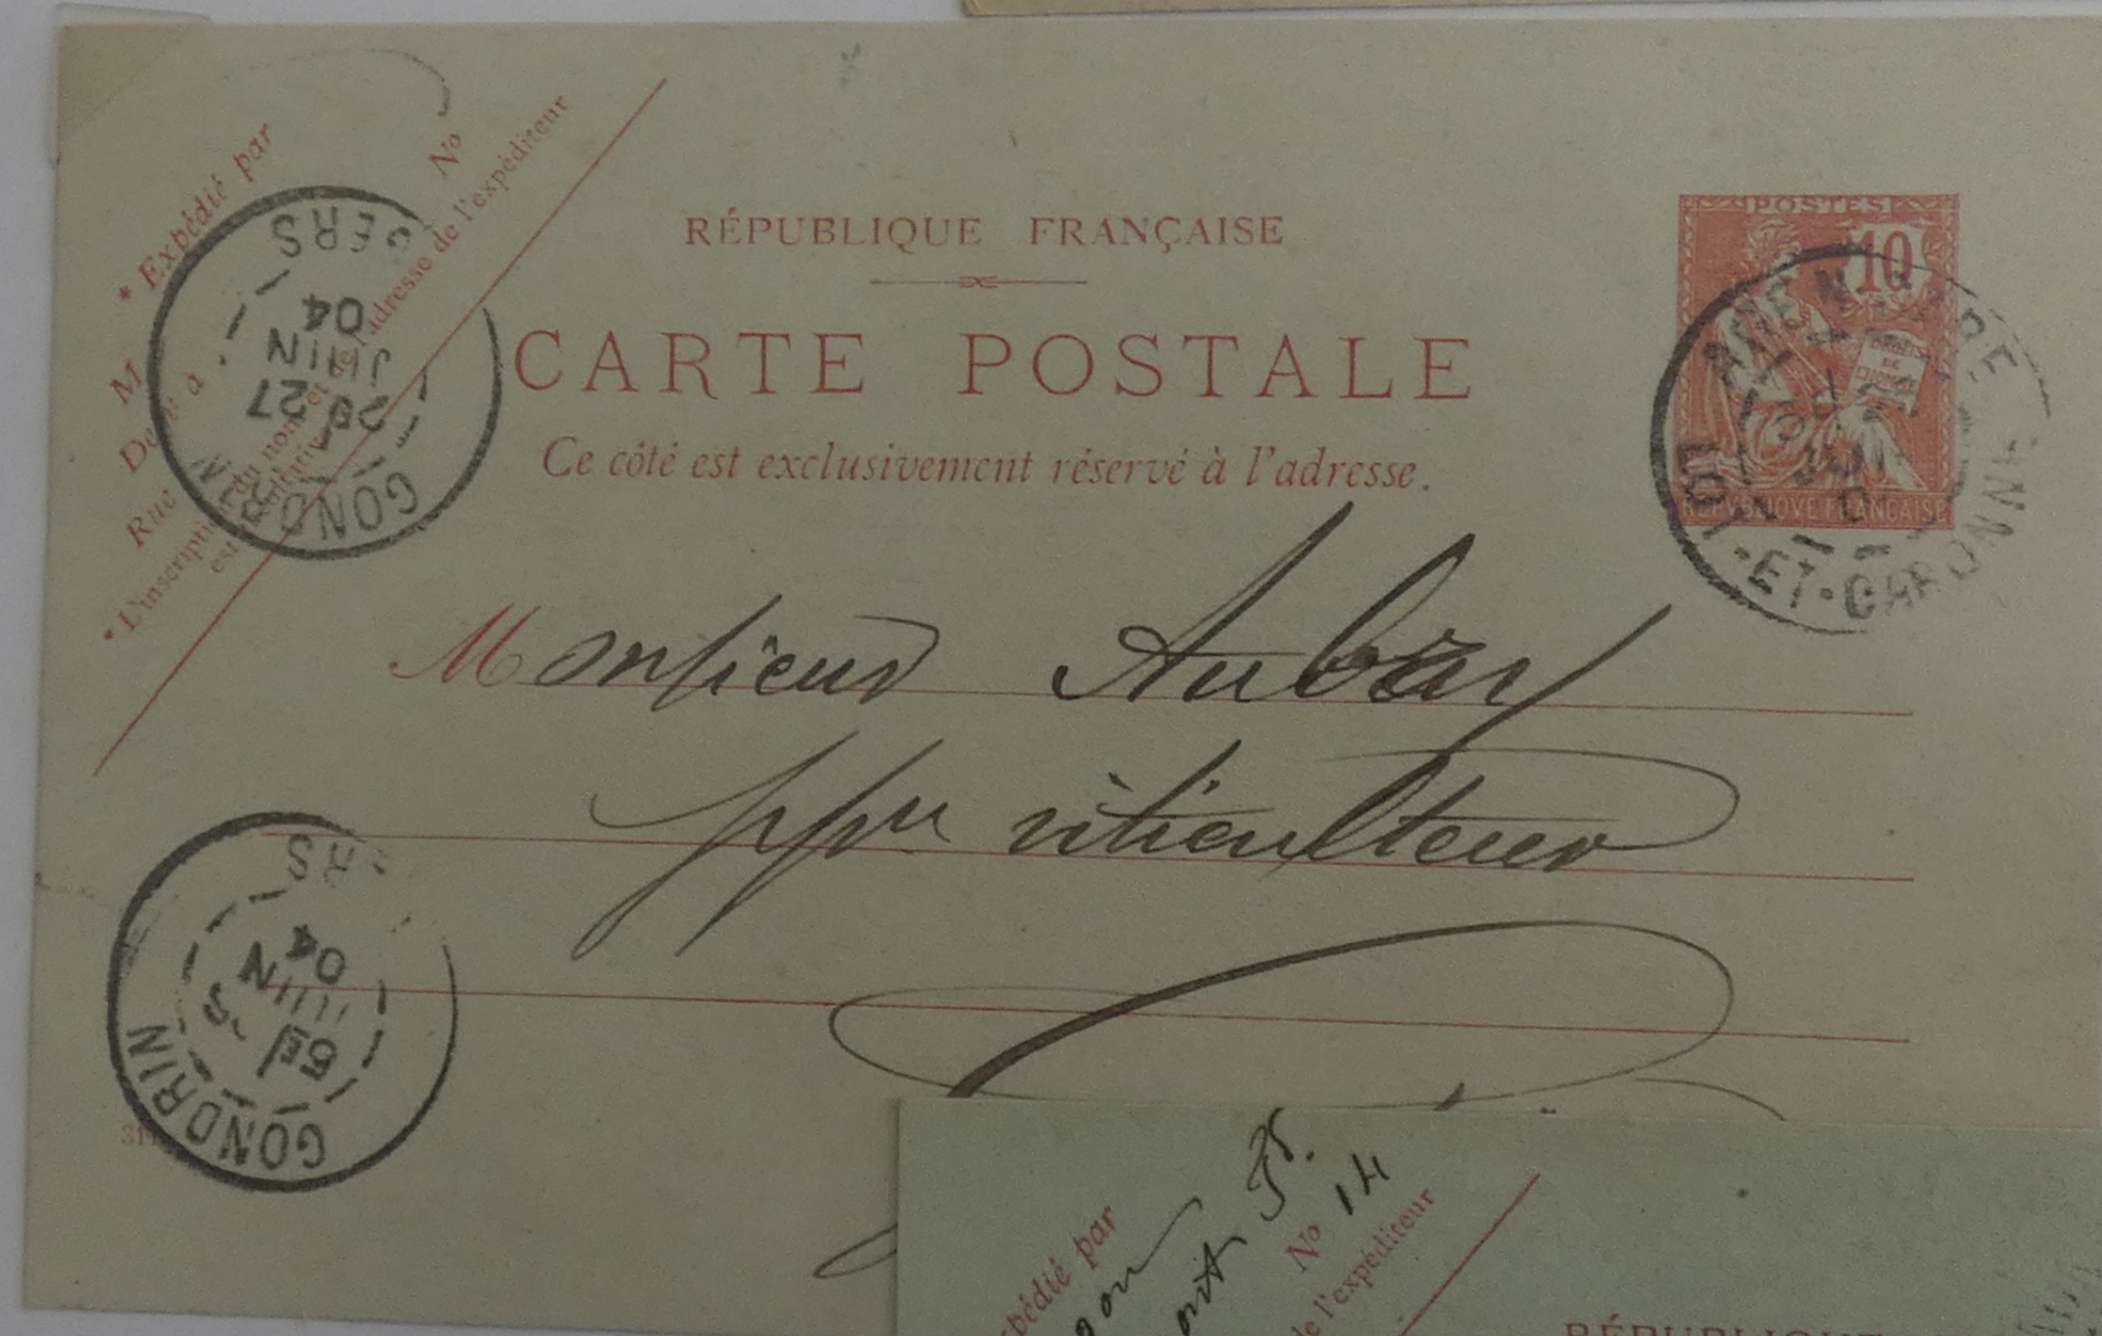 * Expédié par
M
Rue
No
* L'inscription du nom et de l'adresse de l'expéditeur
est facultative
GONDRIN
GERS
2E
27
JUIN
04
RÉPUBLIQUE FRANÇAISE
CARTE POSTALE
Ce côté est exclusivement réservé à l'adresse.
POSTES
10
DROITS
DE
L'HOMME
REPVBLIQVE FRANÇAISE
AGEN GARE
LOT-ET-GARONNE
Monsieur Aubry
ppre viticulteur
GONDRIN
GERS
JUIN
04
Expédié par
No 14
de l'expéditeur
RÉPUBLIQUE